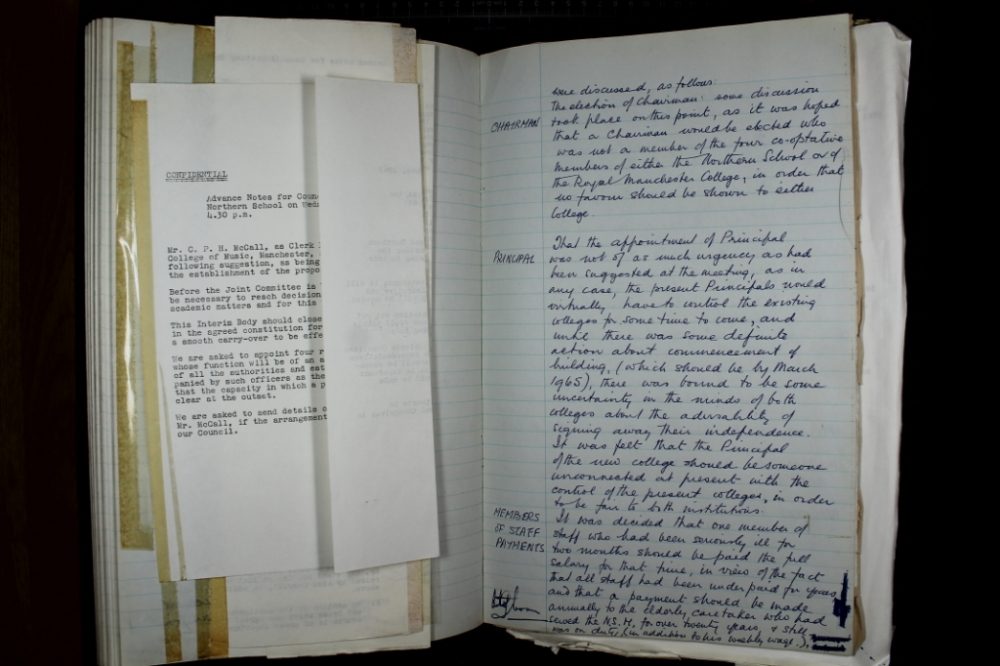 CONFIDENTIAL
Advance Notes for Coun
Northern School on Wedn
4.30 p.m.
Mr. C. P. H. McCall, as Clerk
College of Music, Manchester,
following suggestion, as being
the establishment of the propo
Before the Joint Committee is
be necessary to reach decision
academic matters and for this
This Interim Body should close
in the agreed constitution for
a smooth carry-over to be effe
We are asked to appoint four r
whose function will be of an a
of all the authorities and est
panied by such officers as the
that the capacity in which a p
clear at the outset.
We are asked to send details o
Mr. McCall, if the arrangement
our Council.
were discussed, as follows:
The election of Chairman: some discussion
CHAIRMAN took place on this point, as it was hoped
that a Chairman would be elected who
was not a member of the four co-optative
members of either the Northern School or of
the Royal Manchester College, in order that
no favour should be shown to either
College.
That the appointment of Principal
PRINCIPAL was not of as much urgency as had
been suggested at the meeting, as in
any case, the present Principals would
virtually have to control the existing
colleges for some time to come, and
until there was some definite
action about commencement of
building, (which should be by March
1965), there was bound to be some
uncertainty in the minds of both
colleges about the advisability of
signing away their independence.
It was felt that the Principal
of the new college should be someone
unconnected at present with the
control of the present colleges, in order
to be fair to both institutions.
MEMBERS It was decided that one member of
OF STAFF staff who had been seriously ill for
PAYMENTS two months should be paid the full
salary for that time, in view of the fact
that all staff had been under paid for years
and that a payment should be made
annually to the elderly caretaker who had
served the N.S.M. for over twenty years, & still
was on duty (in addition to his weekly wage.),